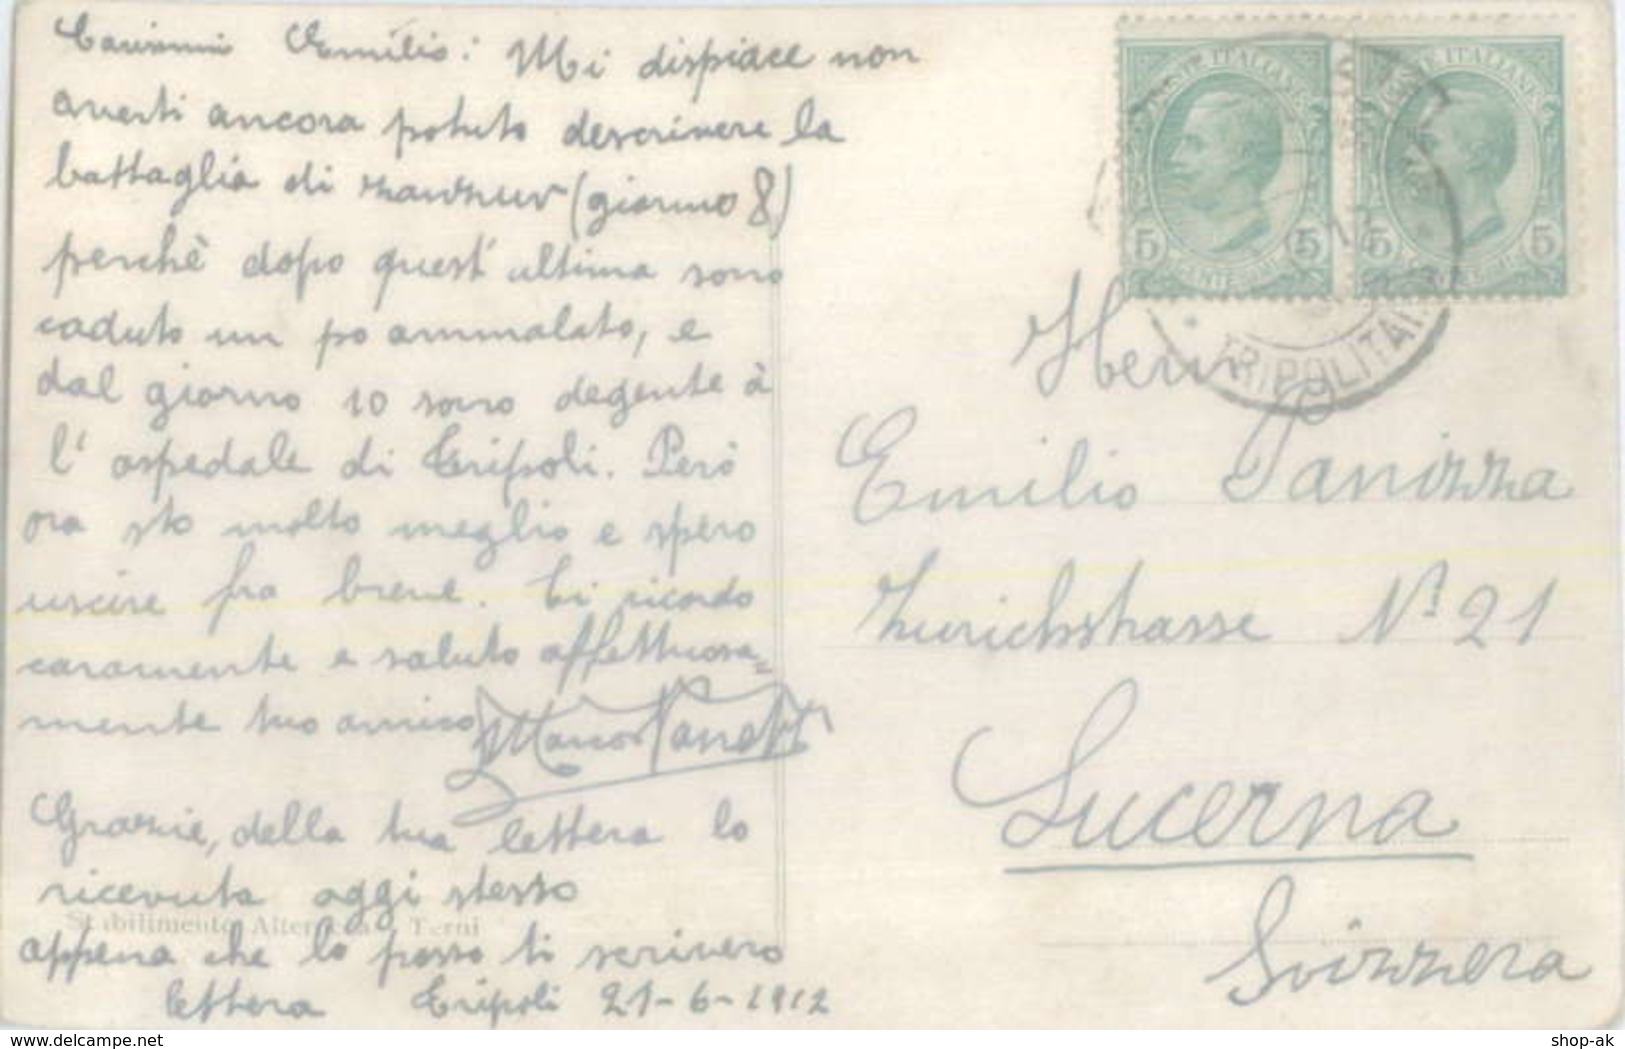 Carissimo Emilio: Mi dispiace non
averti ancora potuto descrivere la
battaglia di Zanzur (giorno 8)
perchè dopo quest'ultima sono
caduto un po ammalato, e
dal giorno 10 sono degente à
l'ospedale di Tripoli. Però
ora sto molto meglio e spero
uscire fra breve. Ti ricordo
caramente e saluto affettuosa=
mente tuo amico Marco
Grazie, della tua lettera lo
ricevuta oggi stesso
appena che lo posso ti scrivero
lettera Tripoli 21-6-1912
Stabilimento Alterocca Terni
POSTE ITALIANE
5 5
POSTE ITALIANE
5 5
TRIPOLITA
Herrn
Emilio Panizza
Zurichstrasse N° 21
Lucerna
Svizzera
www.delcampe.net
shop-ak